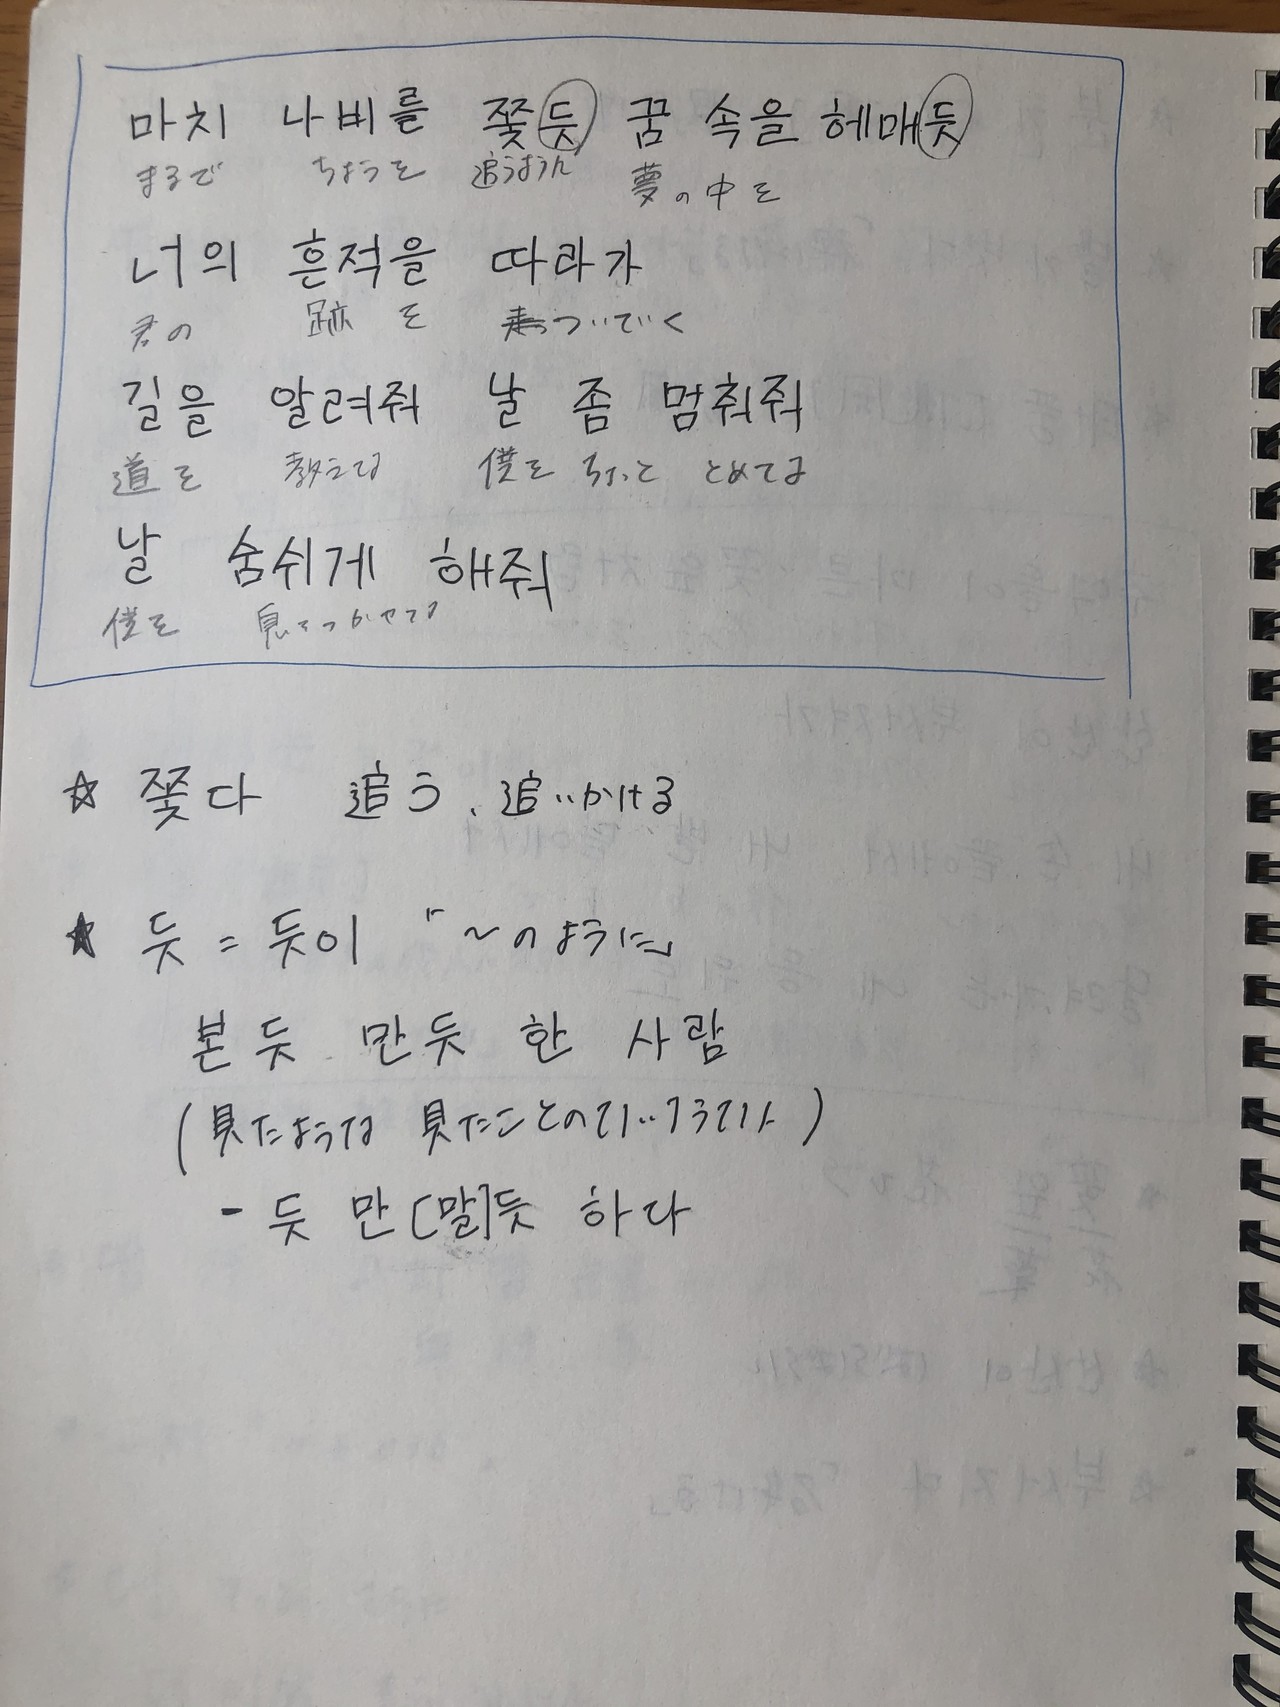 마치 나비를 쫓듯 꿈 속을 헤매듯
まるで ちょうを 追うように 夢の中を
너의 흔적을 따라가
君の 跡を ついていく
길을 알려줘 날 좀 멈춰줘
道を 教えてよ 僕を ちょっと とめてよ
날 숨쉬게 해줘
僕を 息をつかせてよ
☆ 쫓다 追う、追いかける
★ 듯 = 듯이 「~のように」
본듯 만듯 한 사람
(見たような 見たことのないような人)
- 듯 만[말]듯 하다